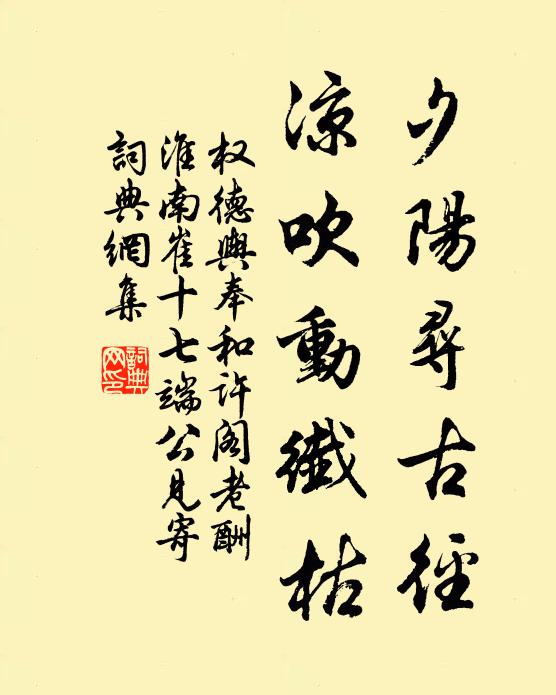 夕陽尋古徑
涼吹動纖枯
权德輿奉和许阁老酬
淮南崔十七端公見寄
詞典網集
詞典网印